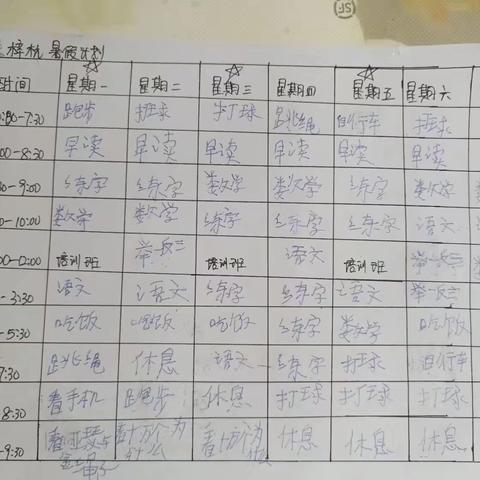 梓杭 暑假计划
时间 星期一 星期二 星期三 星期四 星期五 星期六
-7:30 跑步 打球 打球 跳绳 自行车 打球
00-8:30 早读 早读 早读 早读 早读 早读
-9:00 练字 练字 数学 数学 练字 数学
0-10:00 数学 数学 练字 练字 练字 语文
培训班 举一反三 培训班 语文 培训班 举一反三
-3:30 语文 语文 练字 练字 语文 举一反三
-5:30 吃饭 吃饭 吃饭 练字 数学 吃饭
7:30 跳绳 休息 语文 练字 打球 自行车
-8:30 看手机 跑步 休息 打球 打球 打球
-9:30 看 看十万个为什么 看十万个为什么 休息 休息 休息